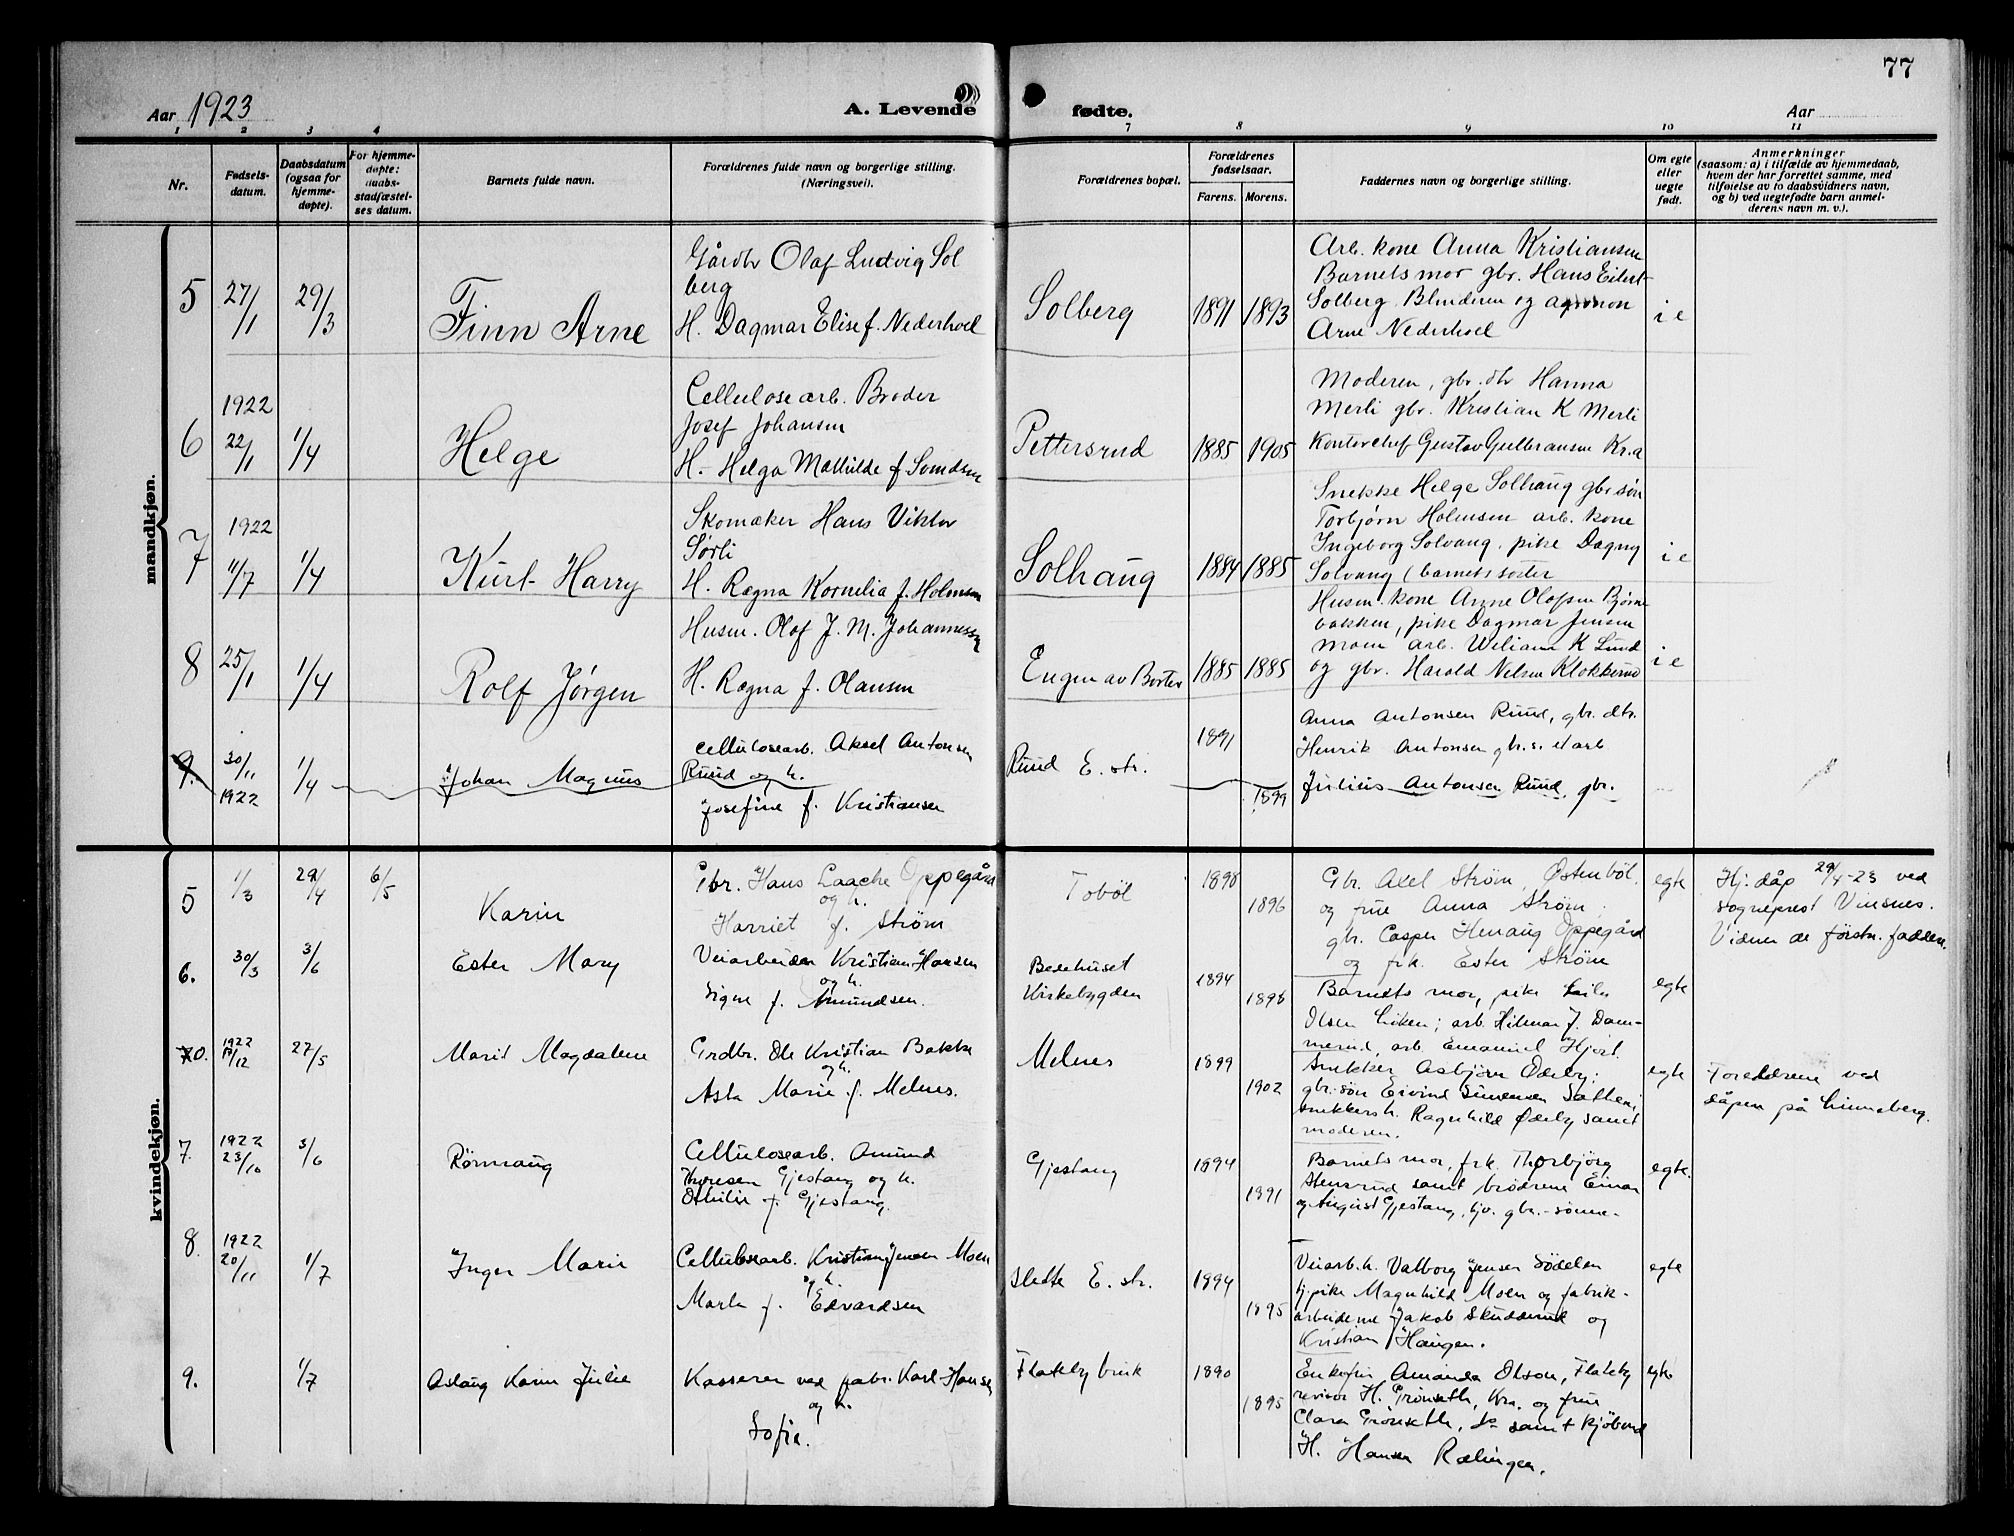 77
Aar 1923
A. Levende
fødte.
Aar
1 2 3 4 7 8 9 10 11
Nr.
Fødsels-
datum.
Daabsdatum
(ogsaa for
hjemme-
døpte).
For hjemme-
døpte:
daabs-
stadfæstel-
ses datum.
Barnets fulde navn.
Forældrenes fulde navn og borgerlige stilling.
(Næringsvei).
Forældrenes bopæl.
Forældrenes
fødselsaar.
Farens. Morens.
Faddernes navn og borgerlige stilling.
Om egte
eller
uegte
født.
Anmerkninger
(saasom: a) i tilfælde av hjemmedaab,
hvem der har forrettet samme, med
tilføielse av to daabsvidners navn,
og b) ved uegtefødte barn anmel-
derens navn m. v.).
mandkjøn.
5 27/1 29/3
Finn Arne
Gårdbr Olaf Ludvig Sol
berg
H. Dagmar Elise f. Nederhoel
Solberg 1891 1893
Arb. kone Anna Kristiansen
Barnets mor gbr. Hans Eilert
Solberg Blinderen og
Arne Nederhoel
i e
6 1922
22/1 1/4
Helge
Cellulosearb. Broder
Josef Johansen
H. Helga Mathilde f.
Pettersrud 1885 1905
Moderen, gbr. dtr Hanna
Merli gbr. Kristian K Merli
Kontorchef Gustav Gulbransen Kr.a
7 1922
11/7 1/4
Kurt Harry
Skomaker Hans Viktor
Sørli
H. Ragna Kornelia f. Holmsen
Solhaug 1884 1885
Snekke Helge Solhaug gbr søn
Torbjørn Holmsen arb. kone
Ingeborg Solvang. pike Dagny
Solvang (barnets søster
i e
8 25/1 1/4
Rolf Jørgen
Husm. Olaf J. M. Johannessen
H. Ragna f. Olansen
Engen av Borter 1885 1885
Husm. kone Anne Olafsen Bjørne
bakken, pike Dagmar Jensen
Moen arb. Wiliam K Lund
og gbr. Harald Nilsen Klokkerud
i e
9. 30/11
1922 1/4
Johan Magnus
Cellulosearb. Aksel Antonsen
Ruud og h.
Josefine f. Kristiansen
Ruud E. str. 1891
1899
Anna Antonsen Ruud, gbr. dtr.
Henrik Antonsen gbr.s. et arb
Julius Antonsen Ruud, gbr.
kvindekjøn.
5 1/3 29/4 6/5
Karin
Gbr. Hans Laache Oppegård
og h.
Harriet f. Strøm
Tobøl 1898
1896
Gbr. Axel Strøm, Østenbøl,
og frue Anna Strøm.
gbr. Casper Henaug Oppegård
og frk. Ester Strøm
egte
Hj. dåp 29/4-23 ved
sogneprest Vinsnes.
Vidner de førstn. faddere.
6. 30/3 3/6
Ester Mary
Veiarbeider Kristian Hansen
og h.
Signe f. Amundsen.
Bedehuset
Kirkebygden
1894
1898
Barnets mor, pike Laila
Olsen Liken; arb. Hilmar J. Dam-
merud, arb. Emanuel Hjort.
egte
10. 1922
17/12 27/5
Marit Magdalene
Grdbr. Ole Kristian Bakke
og h.
Asta Marie f. Melnes.
Melnes 1899
1902
Snekker Asbjørn Ødeby;
gbr. søn Eivind Simensen Satheni
snekkersh. Ragnhild Ødeby samt
moderen.
egte
Foreldrene ved
dåpen på Linneberg.
7. 1922
23/10 3/6
Rönnaug
Cellulosearb. Amund
Thoresen Gjestang og h.
Othilie f. Gjestang.
Gjestang 1894
1891
Barnets mor, frk. Thorbjörg
Stensrud samt brødrene Einar
og August Gjestang, hjv. gbr.-sønne-
egte.
8. 1922
20/11 1/7
Inger Marie
Cellulosearb. Kristian Jensen Moen
og h.
Marta f. Edvardsen
Sletta E. str. 1894
1895
Veiarb. h. Valborg Jensen Sødelen
hj. pike Magnhild Moen og fabrik-
arbeiderne Jakob Skudderud og
Kristian Haugen.
egte
9. 1/7
Aslaug Karin Julie
Kasserer ved fabr. Karl Hansen
og h.
Sofie.
Flateby bruk 1890
1895
Enkefru Amanda Olson, Flateby
revisor H. Grönseth, Kra. og frue
Clara Grönseth, ds samt kjøbmd
H. Hansen Rælingen.
egte